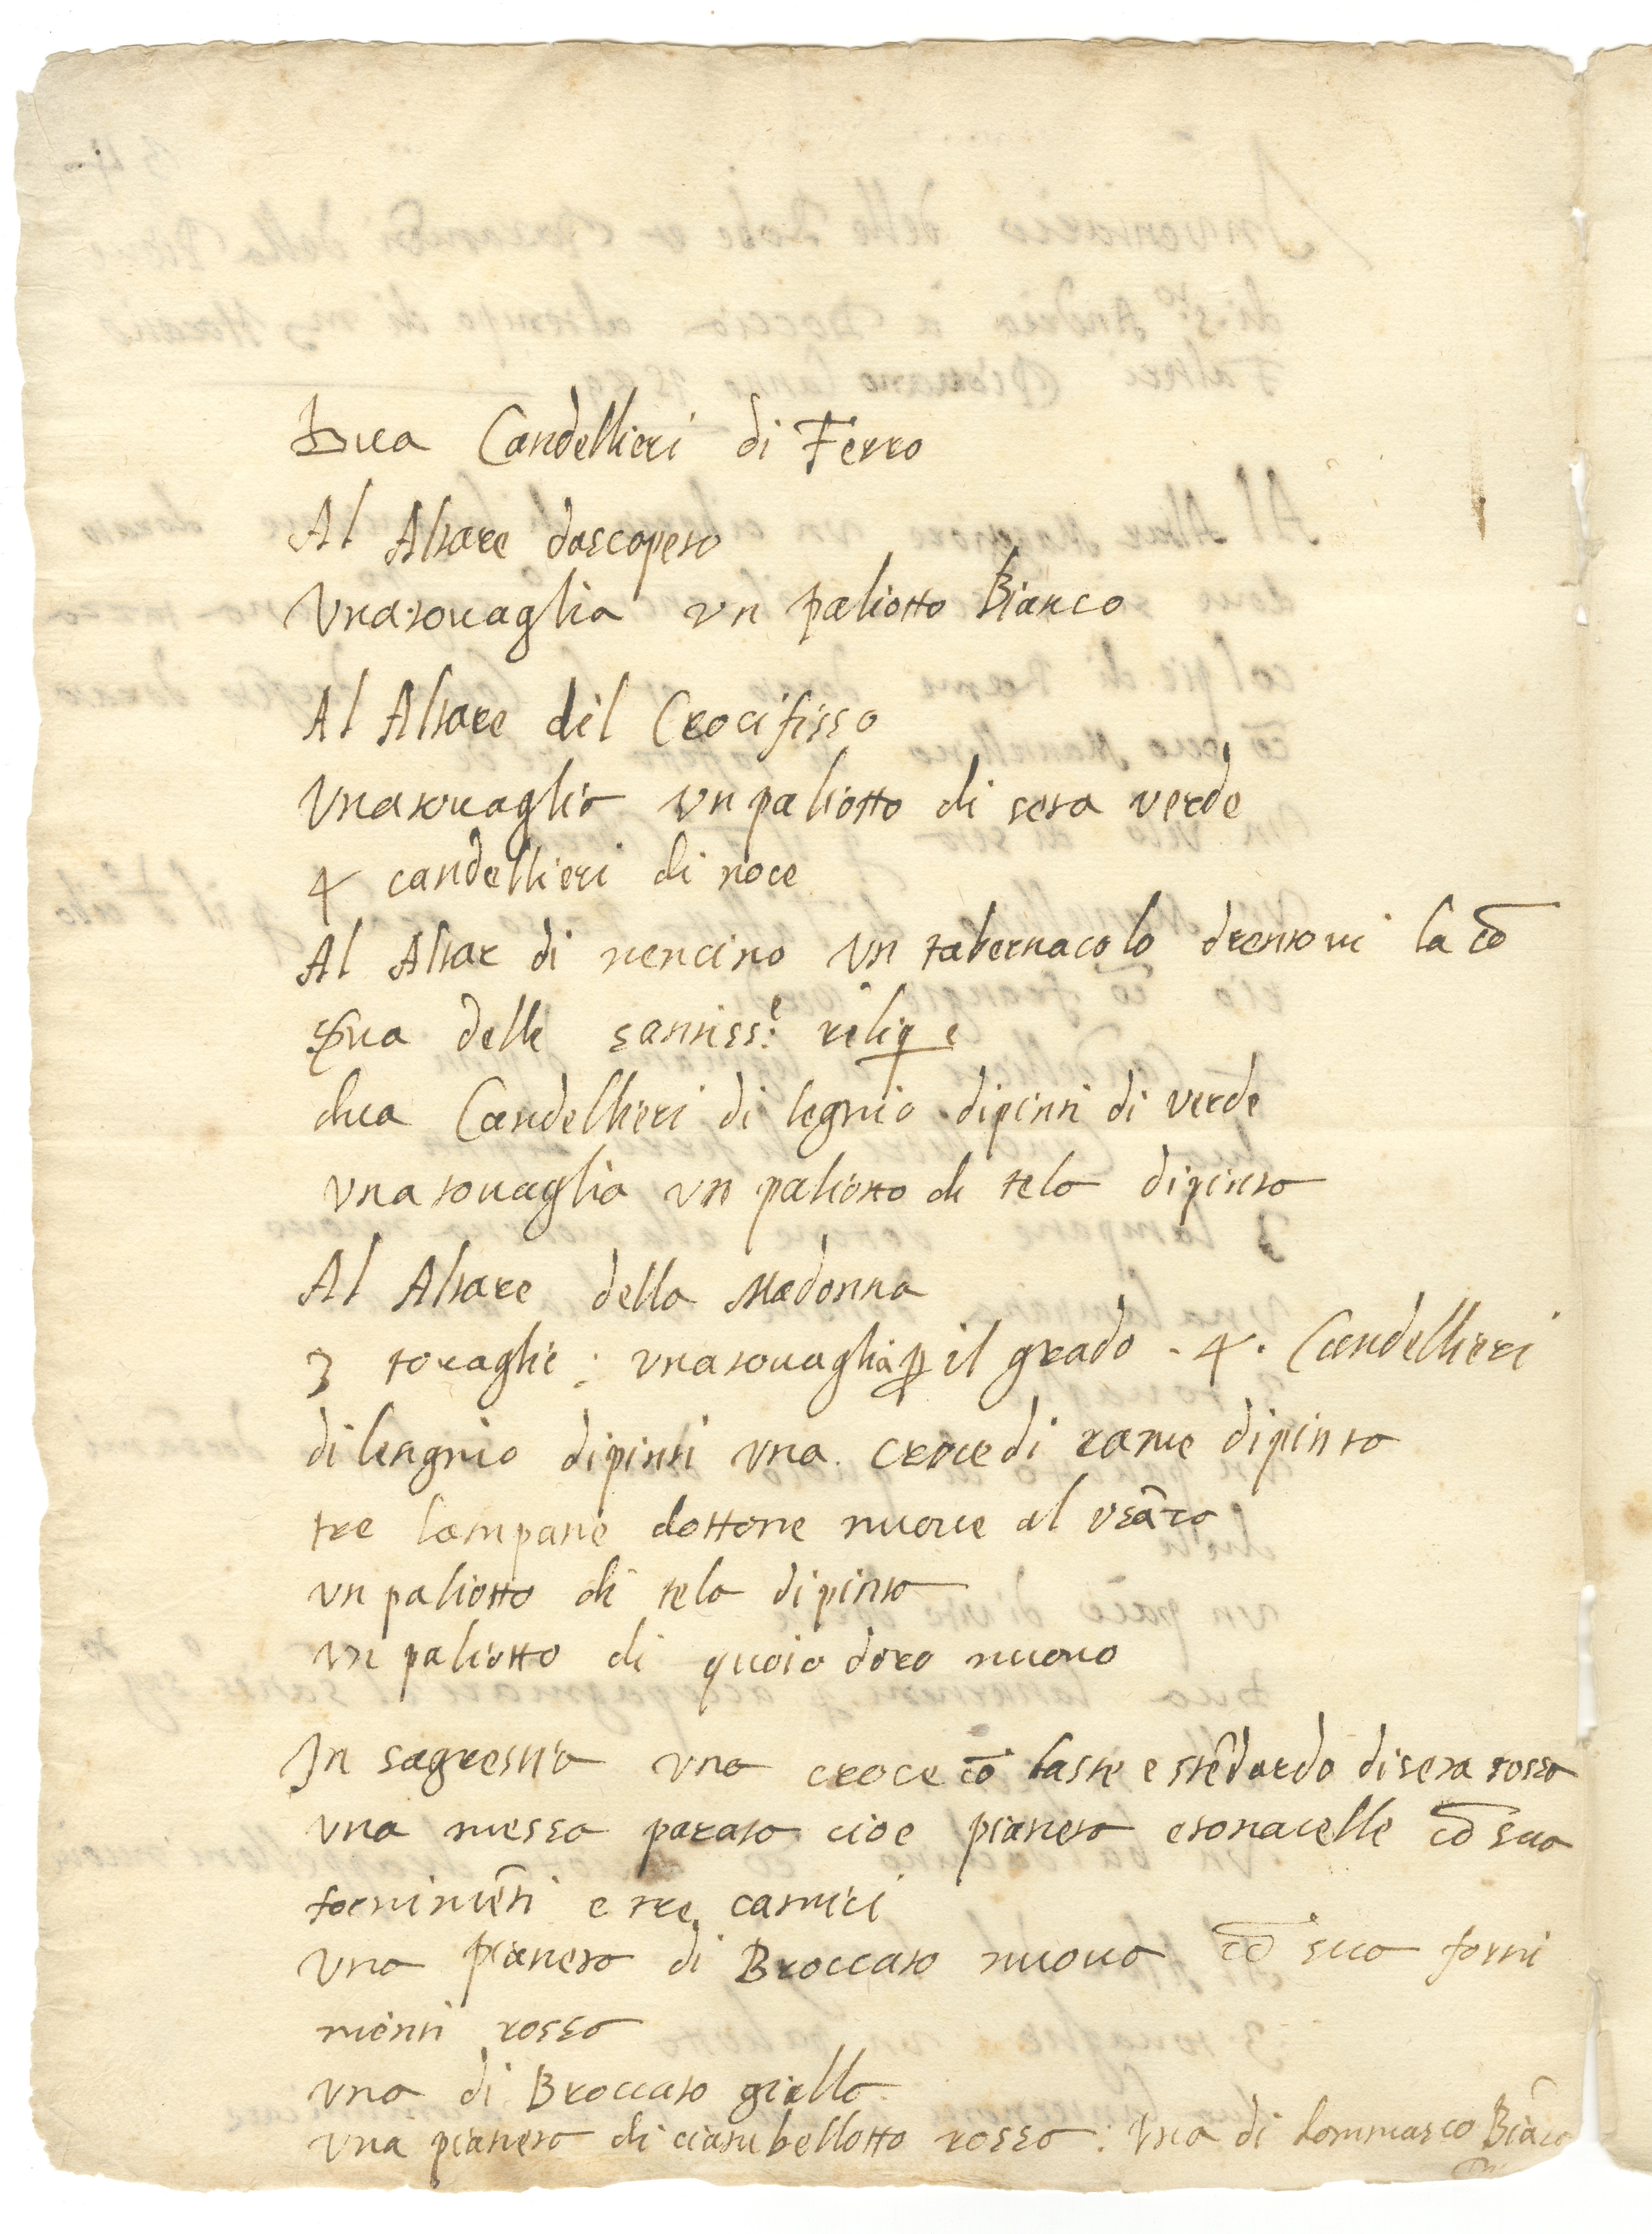 Dua Candellieri di Ferro
Al Altare dascopeto
Una tovaglia un paliotto Bianco
Al Altare del Crocifisso
Una tovaglia un paliotto di seta verde
4 candellieri di noce
Al Altar di nencino un tabernacolo drentovi la cō
delle santiss:e reliq e
dua Candellieri di legnio dipinti di verde
una tovaglia un paliotto di tela dipinta
Al Altare della Madonna
3 tovaglie : una tovaglia ꝑ il grado . 4 . Candellieri
di lengnio dipinti una croce di rame dipinta
tre lampane dottone nuove al usāza
un paliotto di tela dipinta
un paliotto di quoio doro nuovo
In sagrestia una croce cō laste e stēdardo di seta rossa
una messa parata cioe pianeta e tonacelle cō sua
fornimēti e tre camici
una pianeta di Broccato nuova cō sua forni
menti rossa
una di Broccato gialla
una pianeta di ciambellotto rosso : una di dommasco Biāco